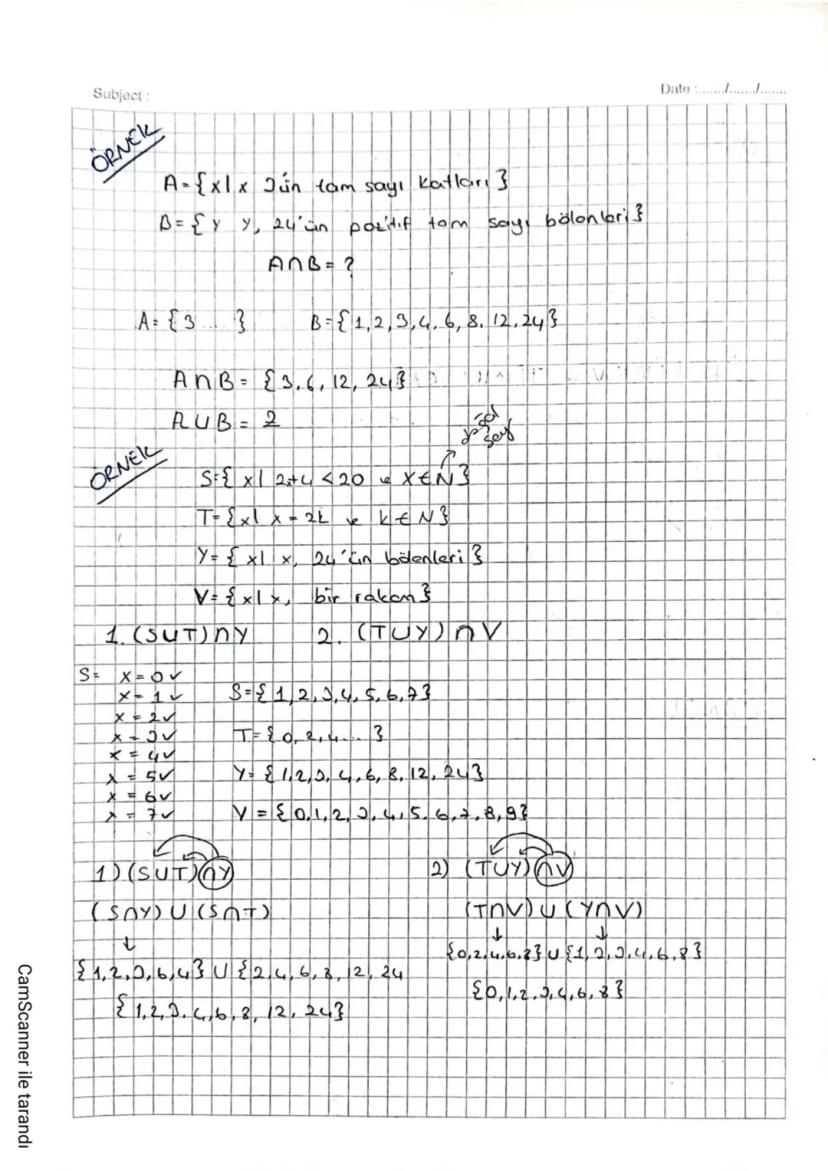 Subject :
Date :......./......./.......
ÖRNEK
A = {x | x 3'ün tam sayı katları }
B = { y y, 24'ün pozitif tam sayı bölenleri }
A∩B = ?
A = { 3 ... }
B = { 1, 2, 3, 4, 6, 8, 12, 24 }
A∩B = { 3, 6, 12, 24 }
A∪B = 2
ÖRNEK
doğal sayı
S = { x | 2x+4 < 20 ve x ∈ N }
T = { x | x = 2k ve k ∈ N }
Y = { x | x, 24'ün bölenleri }
V = { x | x, bir rakam }
1. (S∪T)∩Y
2. (T∪Y)∩V
S = x = 0 ✓
x = 1 ✓
x = 2 ✓
x = 3 ✓
x = 4 ✓
x = 5 ✓
x = 6 ✓
x = 7 ✓
S = { 1, 2, 3, 4, 5, 6, 7 }
T = { 0, 2, 4 ... }
Y = { 1, 2, 3, 4, 6, 8, 12, 24 }
V = { 0, 1, 2, 3, 4, 5, 6, 7, 8, 9 }
1) (S∪T)∩Y
(S∩Y) ∪ (S∩T)
↓
{ 1, 2, 3, 6, 4 } ∪ { 2, 4, 6, 8, 12, 24
{ 1, 2, 3, 4, 6, 8, 12, 24 }
2) (T∪Y)∩V
(T∩V) ∪ (Y∩V)
↓ ↓
{0, 2, 4, 6, 8} ∪ {1, 2, 3, 4, 6, 8}
{0, 1, 2, 3, 4, 6, 8}
CamScanner ile tarandı